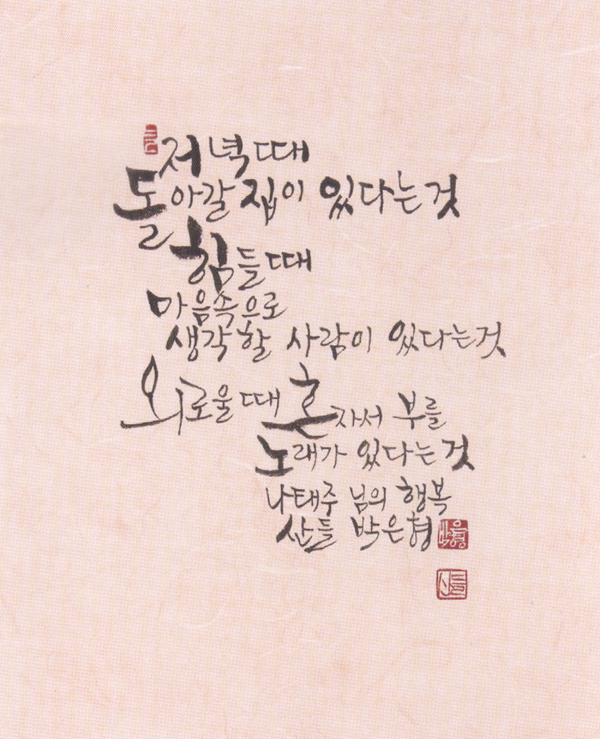 저녁때
돌아갈 집이 있다는것
힘들때
마음속으로
생각할 사람이 있다는것
외로울때 혼자서 부를
노래가 있다는것
나태주 님의 행복
산들 박은형
은형
산들